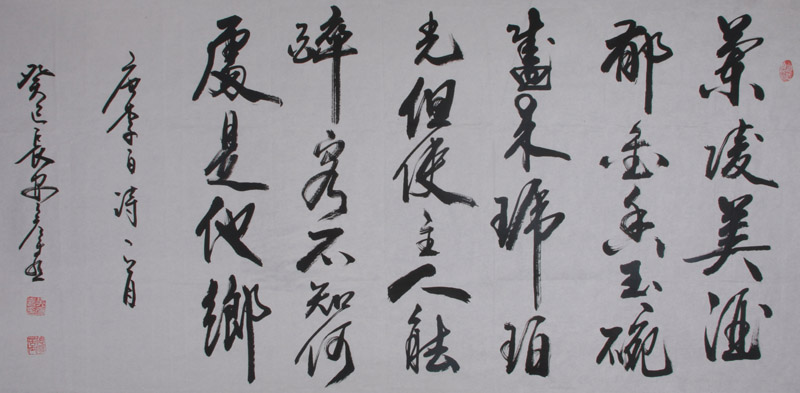 蘭陵美酒
郁金香玉碗
盛来琥珀
光但使主人能
醉客不知何
處是他鄉
唐李白詩一首
癸巳長安